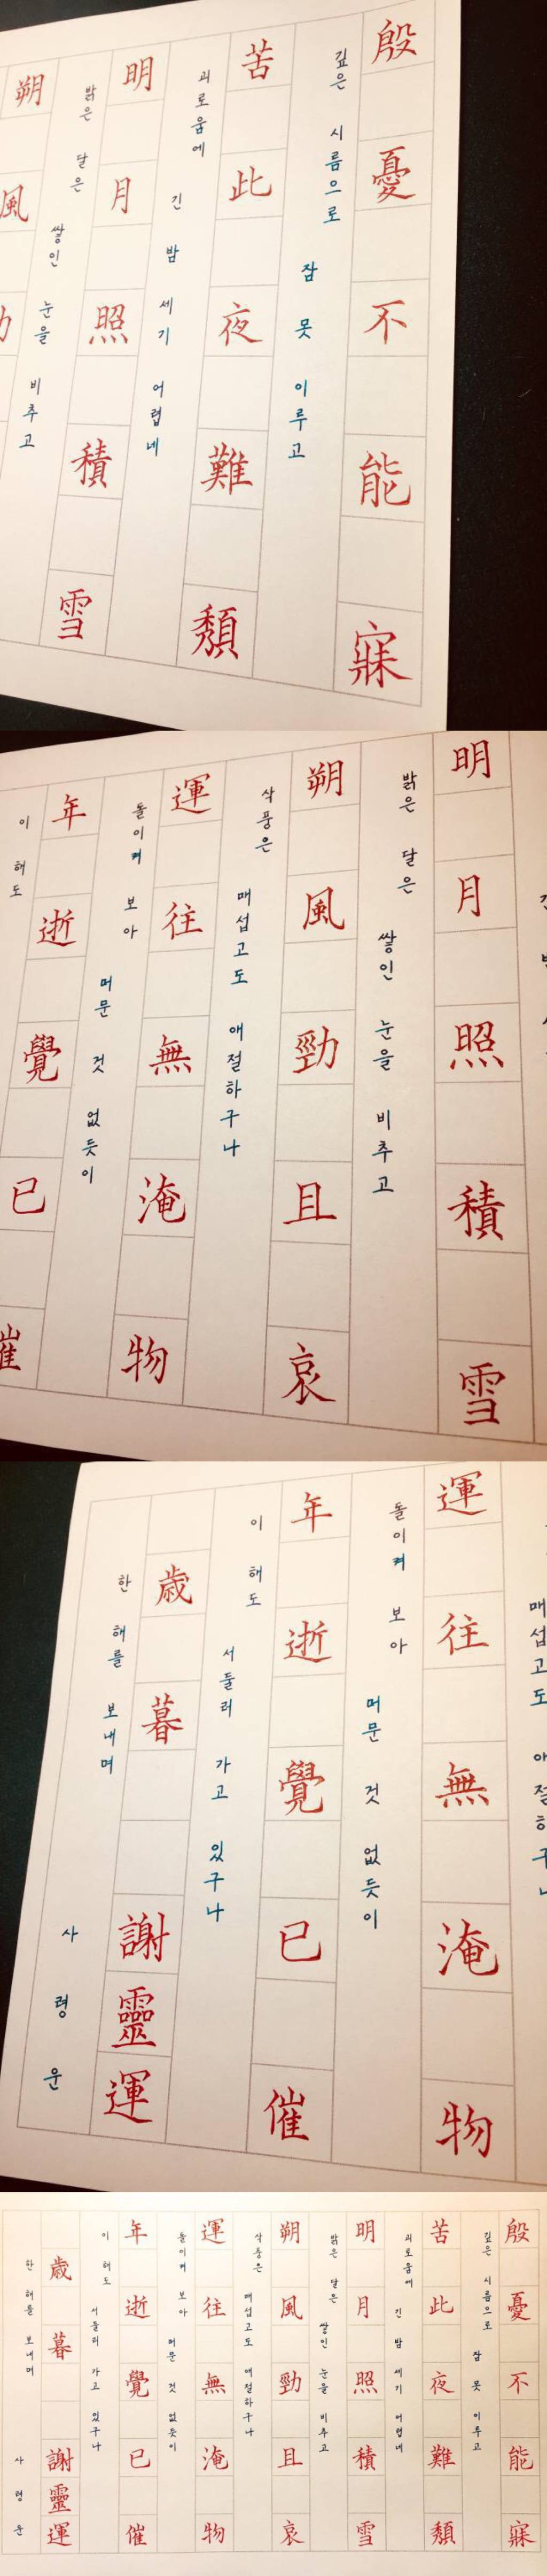 殷憂不能寐
깊은 시름으로 잠 못 이루고
苦此夜難頹
괴로움에 긴 밤 세기 어렵네
明月照積雪
밝은 달은 쌓인 눈을 비추고
朔風
明月照積雪
밝은 달은 쌓인 눈을 비추고
朔風勁且哀
삭풍은 매섭고도 애절하구나
運往無淹物
돌이켜 보아 머문 것 없듯이
年逝覺已催
이 해도
매섭고도 애절하
運往無淹物
돌이켜 보아 머문 것 없듯이
年逝覺已催
이 해도 서둘러 가고 있구나
歳暮 謝靈運
한 해를 보내며 사령운
殷憂不能寐
깊은 시름으로 잠 못 이루고
苦此夜難頹
괴로움에 긴 밤 세기 어렵네
明月照積雪
밝은 달은 쌓인 눈을 비추고
朔風勁且哀
삭풍은 매섭고도 애절하구나
運往無淹物
돌이켜 보아 머문 것 없듯이
年逝覺已催
이 해도 서둘러 가고 있구나
歳暮 謝靈運
한 해를 보내며 사령운